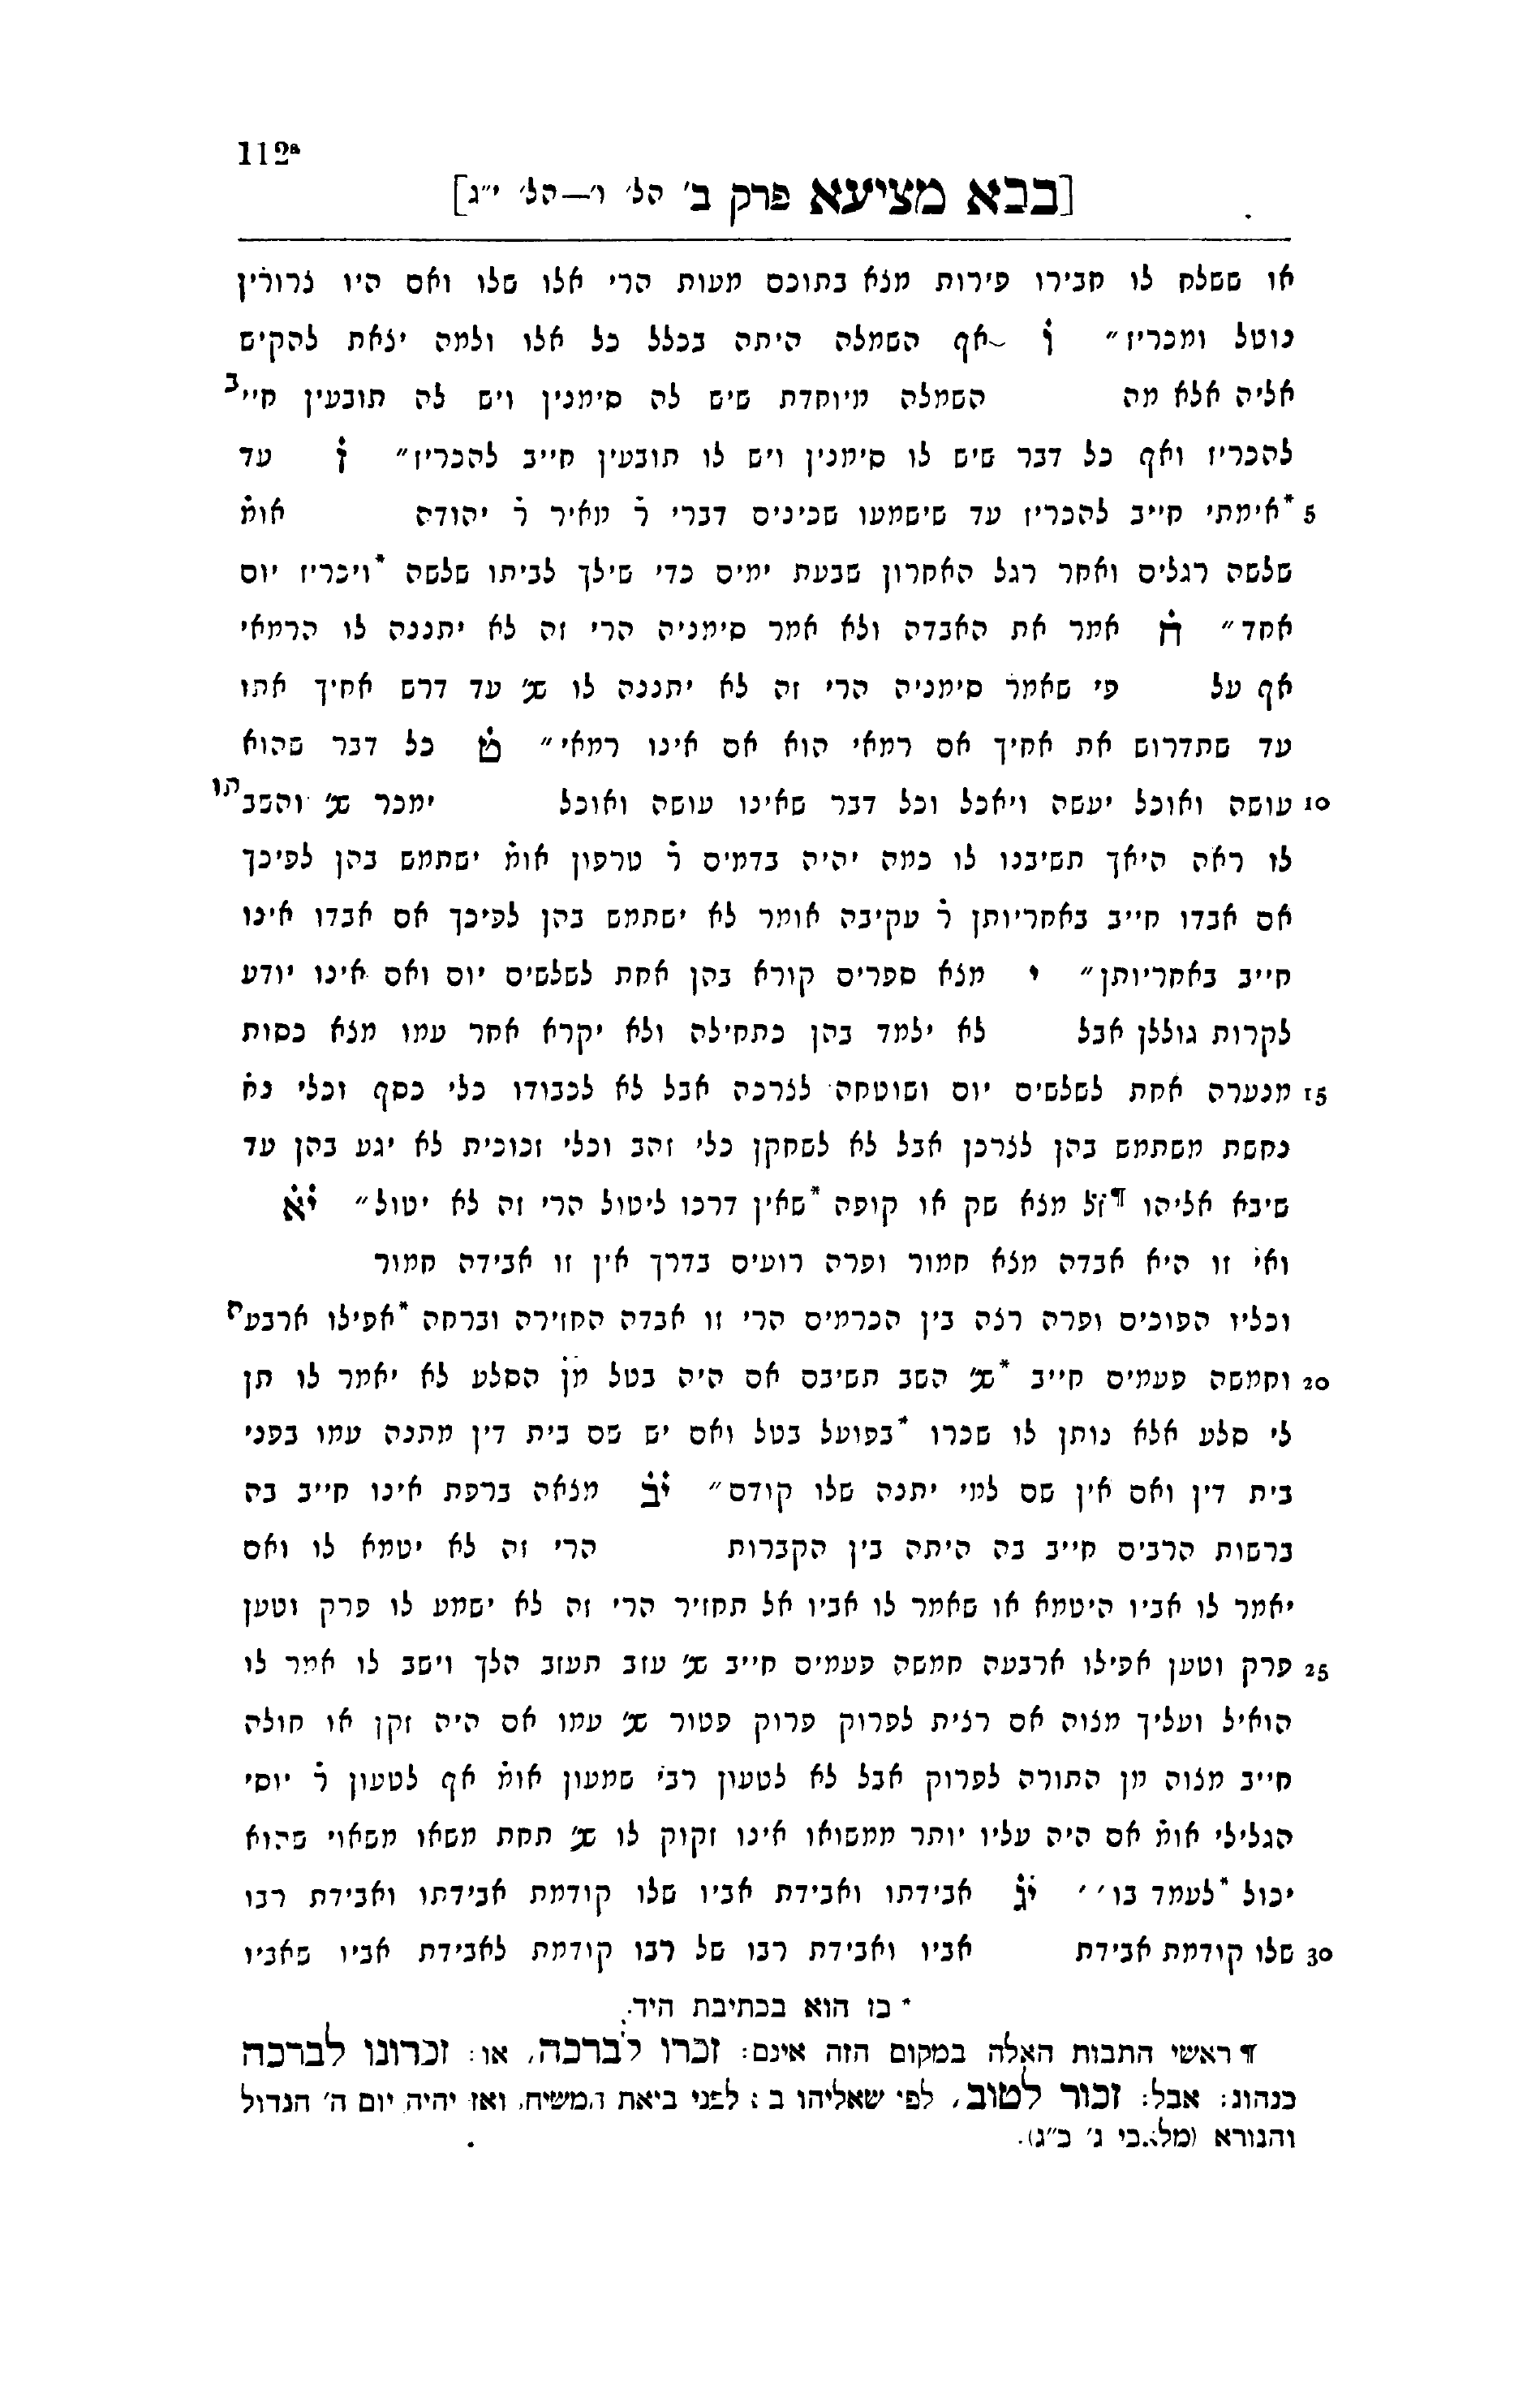 112ª
[בבא מציעא פרק ב' הל' ו'—הל' י״ג]
או ששלח לו חבירו פירות מצא בתוכם מעות הרי אלו שלו ואם היו צרורין
נוטל ומכריז״ ו אף השמלה היתה בכלל כל אלו ולמה יצאת להקיש
אליה אלא מה השמלה מיוחדת שיש לה סימנין ויש לה תובעין חייב
להכריז ואף כל דבר שיש לו סימנין ויש לו תובעין חייב להכריז״ ז עד
5 *אימתי חייב להכריז עד שישמעו שכינים דברי ר מאיר ר יהודה אומ
שלשה רגלים ואחר רגל האחרון שבעת ימים כדי שילך לביתו שלשה *ויכריז יום
אחד״ ח אמר את האבדה ולא אמר סימניה הרי זה לא יתננה לו הרמאי
אף על פי שאמר סימניה הרי זה לא יתננה לו שנ' עד דרש אחיך אתו
עד שתדרוש את אחיך אם רמאי הוא אם אינו רמאי״ ט כל דבר שהוא
10 עושה ואוכל יעשה ויאכל וכל דבר שאינו עושה ואוכל ימכר שנ' והשבתו
לו ראה היאך תשיבנו לו כמה יהיה בדמים ר טרפון אומ ישתמש בהן לפיכך
אם אבדו חייב באחריותן ר עקיבה אומר לא ישתמש בהן לפיכך אם אבדו אינו
חייב באחריותן״ י מצא ספרים קורא בהן אחת לשלשים יום ואם אינו יודע
לקרות גוללן אבל לא ילמד בהן כתחילה ולא יקרא אחר עמו מצא כסות
15 מנערה אחת לשלשים יום ושוטחה לצרכה אבל לא לכבודו כלי כסף וכלי נח
נחשת משתמש בהן לצרכן אבל לא לשחקן כלי זהב וכלי זכוכית לא יגע בהן עד
שיבא אליהו ¶זל מצא שק או קופה *שאין דרכו ליטול הרי זה לא יטול״ יא
ואי זו היא אבדה מצא חמור ופרה רועים בדרך אין זו אבידה חמור
וכליו הפוכים ופרה רצה בין הכרמים הרי זו אבדה החזירה וברחה *אפילו ארבעה
20 וחמשה פעמים חייב *שנ' השב תשיבם אם היה בטל מן הסלע לא יאמר לו תן
לי סלע אלא נותן לו שכרו *בפועל בטל ואם יש שם בית דין מתנה עמו בפני
בית דין ואם אין שם למי יתנה שלו קודם״ יב מצאה ברפת אינו חייב בה
ברשות הרבים חייב בה היתה בין הקברות הרי זה לא יטמא לו ואם
יאמר לו אביו היטמא או שאמר לו אביו אל תחזיר הרי זה לא ישמע לו פרק וטען
25 פרק וטען אפילו ארבעה חמשה פעמים חייב שנ' עזב תעזב הלך וישב לו אמר לו
הואיל ועליך מצוה אם רצית לפרוק פרוק פטור שנ' עמו אם היה זקן או חולה
חייב מצוה מן התורה לפרוק אבל לא לטעון רבי שמעון אומ אף לטעון ר יוסי
הגלילי אומ אם היה עליו יותר ממשואו אינו זקוק לו שנ' תחת משאו משאוי שהוא
יכול *לעמד בו״ יג אבידתו ואבידת אביו שלו קודמת אבידתו ואבידת רבו
30 שלו קודמת אבידת אביו ואבידת רבו של רבו קודמת לאבידת אביו שאביו
* כז הוא בכתיבת היד.
¶ ראשי התבות האלה במקום הזה אינם: זכרו לברכה, או: זכרונו לברכה
כנהוג: אבל: זכור לטוב, לפי שאליהו בא לפני ביאת המשיח, ואז יהיה יום ה' הגדול
והנורא (מלאכי ג' כ״ג).